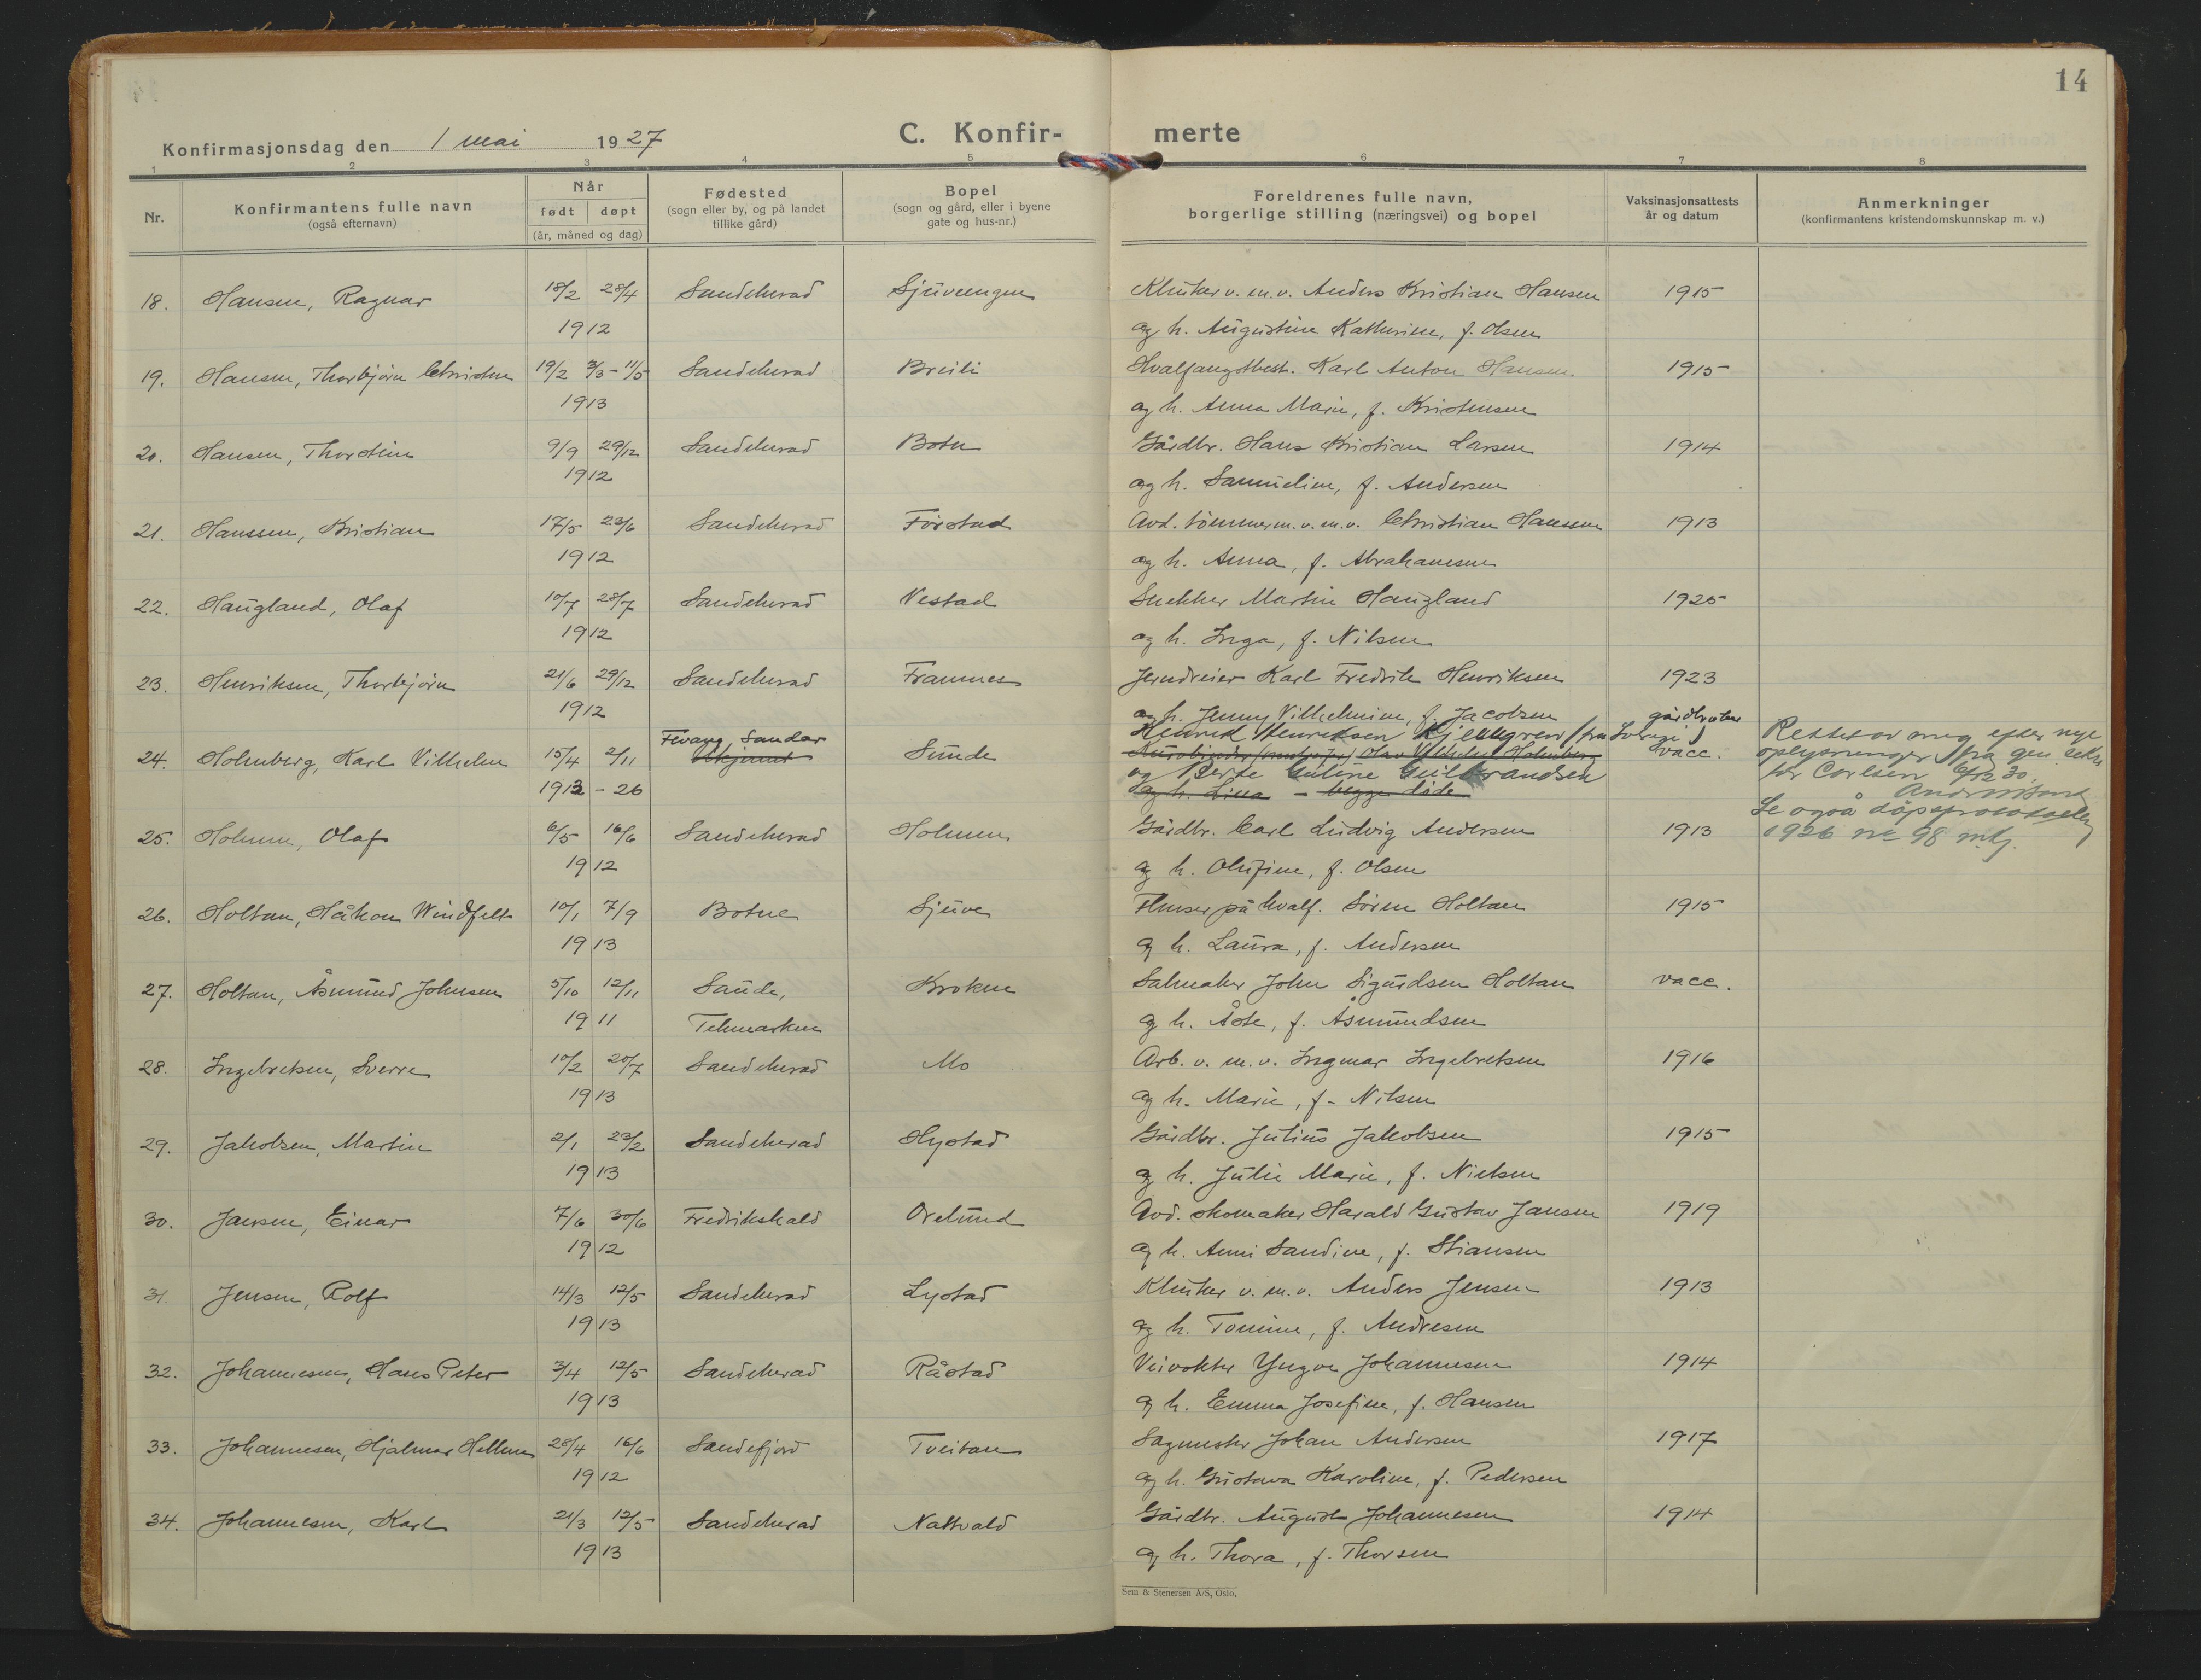 14
Konfirmasjonsdag den 1 mai 1927
C. Konfir- merte
1 2 3 4 5 6 7 8
Nr.
Konfirmantens fulle navn
(også efternavn)
Når
født døpt
(år, måned og dag)
Fødested
(sogn eller by, og på landet
tillike gård)
Bopel
(sogn og gård, eller i byene
gate og hus-nr.)
Foreldrenes fulle navn,
borgerlige stilling (næringsvei) og bopel
Vaksinasjonsattests
år og datum
Anmerkninger
(konfirmantens kristendomskunnskap m. v.)
18. Hansen, Ragnar 18/2 28/4 Sandeherad Sjuvengen Klinker v. m. v. Anders Kristian Hansen 1915
1912 og h. Augustine Kathrine, f. Olsen
19. Hansen, Thorbjørn Christen 19/2 3/3-11/5 Sandeherad Breili Hvalfangstbest. Karl Anton Hansen 1915
1913 og h. Anna Marie, f. Kristensen
20. Hansen, Thorstein 9/9 29/12 Sandeherad Botn Gårdbr. Hans Kristian Larsen 1914
1912 og h. Samueline, f. Andersen
21. Hanssen, Kristian 17/5 23/6 Sandeherad Forstad Avd. tømmerm. v. m. v. Christian Hanssen 1913
1912 og h. Anna, f. Abrahamsen
22. Haugland, Olaf 10/7 28/7 Sandeherad Vestad Snekker Martin Haugland 1925
1912 og h. Inga, f. Nilsen
23. Henriksen, Thorbjørn 21/6 29/12 Sandeherad Framnes Jerndreier Karl Fredrik Henriksen 1923
1912 og h. Jenny Vilhelmine, f. Jacobsen
gårdbruker
Henrik Henriksen Kjellgren (fra Sverige)
24. Holmberg, Karl Vilhelm 15/4 2/11 Fevang, Sandar Ukjennt Sunde Olav Vilhelm Holmberg vacc.
1912 - 26 og Berte Guline Gulbrandsen
og h. Lina - begge døde
Rettet av meg efter nye
oplysninger fra gen. sekr
før Carlsen 6/12 30.
Se også dåpsprotokollen
1926 nr 98 mkj.
25. Holmen, Olaf 6/5 16/6 Sandeherad Holmen Gårdbr. Carl Ludvig Andersen 1913
1912 og h. Olufine, f. Olsen
26. Holtan, Håkon Windfelt 10/1 7/9 Botne Sjuve Flenser på hvalf. Søren Holtan 1915
1913 og h. Laura, f. Andersen
27. Holtan, Åsmund Johnsen 5/10 12/11 Saude, Kroken Salmaker John Sigurdsen Holtan vacc.
1911 Telemarken og h. Åste, f. Åsmundsen
28. Ingebretsen, Sverre 10/2 20/7 Sandeherad Mo Arb. v. m. v. Ingmar Ingebretsen 1916
1913 og h. Marie, f. Nilsen
29. Jakobsen, Martin 2/1 23/2 Sandeherad Hystad Gårdbr. Julius Jakobsen 1915
1913 og h. Julie Marie, f. Nielsen
30. Jansen, Einar 7/6 30/6 Fredrikshald Orelund Avd. skomaker Harald Gustav Jansen 1919
1912 og h. Anni Sandine, f. Stiansen
31. Jensen, Rolf 14/3 12/5 Sandeherad Lystad Klinker v. m. v. Anders Jensen 1913
1913 og h. Tomine, f. Andresen
32. Johannesen, Hans Peter 3/4 12/5 Sandeherad Råstad Veivokter Yngvar Johannesen 1914
1913 og h. Emma Josefine, f. Hansen
33. Johannesen, Hjalmar Hellem 28/4 16/6 Sandefjord Tveitan Sagmester Johan Andersen 1917
1912 og h. Gustava Karoline, f. Pedersen
34. Johannesen, Karl 21/3 12/5 Sandeherad Nattvald Gårdbr. August Johannesen 1914
1913 og h. Thora, f. Thorsen
Sem & Stenersen A/S, Oslo.